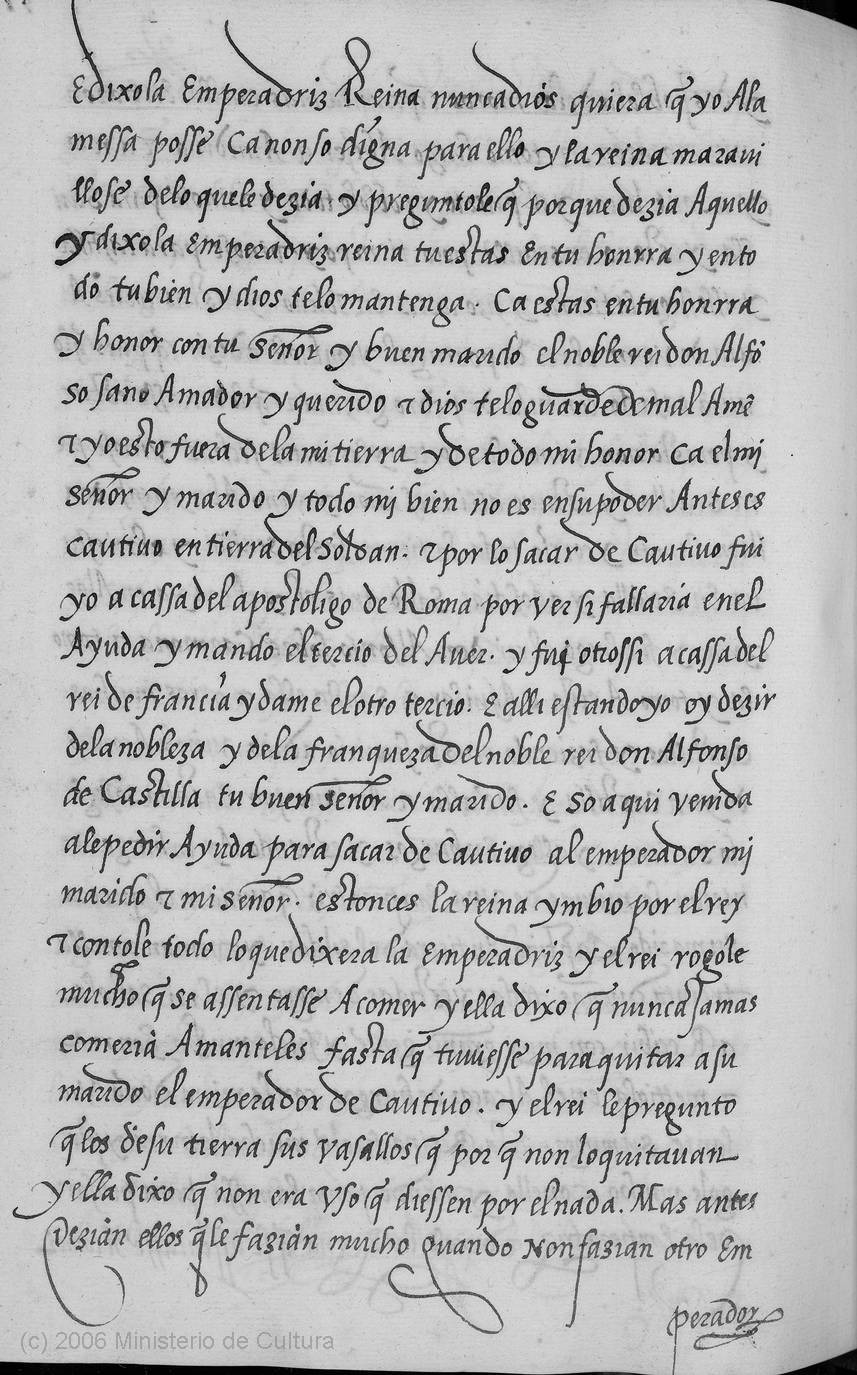 Edixola Emperadriz Reina nuncadios quiera q̃ yo Ala
messa posse Canonso digna paraello y lareina maravi
llose delo quele dezia y preguntoleq̃ porquedezia Aquello
y dixola Emperadriz reina tuestas Entu honrra y ento
do tubien y dios telomantenga. Ca estas entu honrra
y honor contu señor y buen marido elnoblerei don Alfõ
so sano Amador y querido & dios teloguardedemal Amẽ
& yoesto fuera delamitierra y detodomi honor Ca elmi
señor y marido y todo mi bien no es ensupoder Anteses
cautivo entierradelSoldan. & por losacar de Cautivo fui
yo acassadelapostoligo de Roma por versi fallaria enel
Ayuda y mando eltercio del Aver. y fui otrossi acassadel
reide francia ydame elotro tercio. E alli estandoyo oy dezir
delanobleza y dela franquezadelnoble rei don Alfonso
de Castilla tu buen señor y marido. E so aqui venida
alepedir Ayuda para sacar de Cautivo al emperador mi
marido & mi señor. estonces lareina ymbio por elrey
& contole todo loquedixera la Emperadriz y elrei rogole
mucho q̃ se assentasse Acomer yella dixo q̃ nuncaJamas
comeria Amanteles fasta q̃ tuviesse paraquitar asu
marido el emperador de Cautivo. y elrei lepregunto
q̃los desu tierra sus vasallos q̃ por q̃ non loquitauan
yella dixo q̃ non era Vso q̃ diessen por elnada. Mas antes
Dezian ellos q̃le fazian mucho quando Nonfazian otro Em
perador
(c) 2006 Ministerio de Cultura